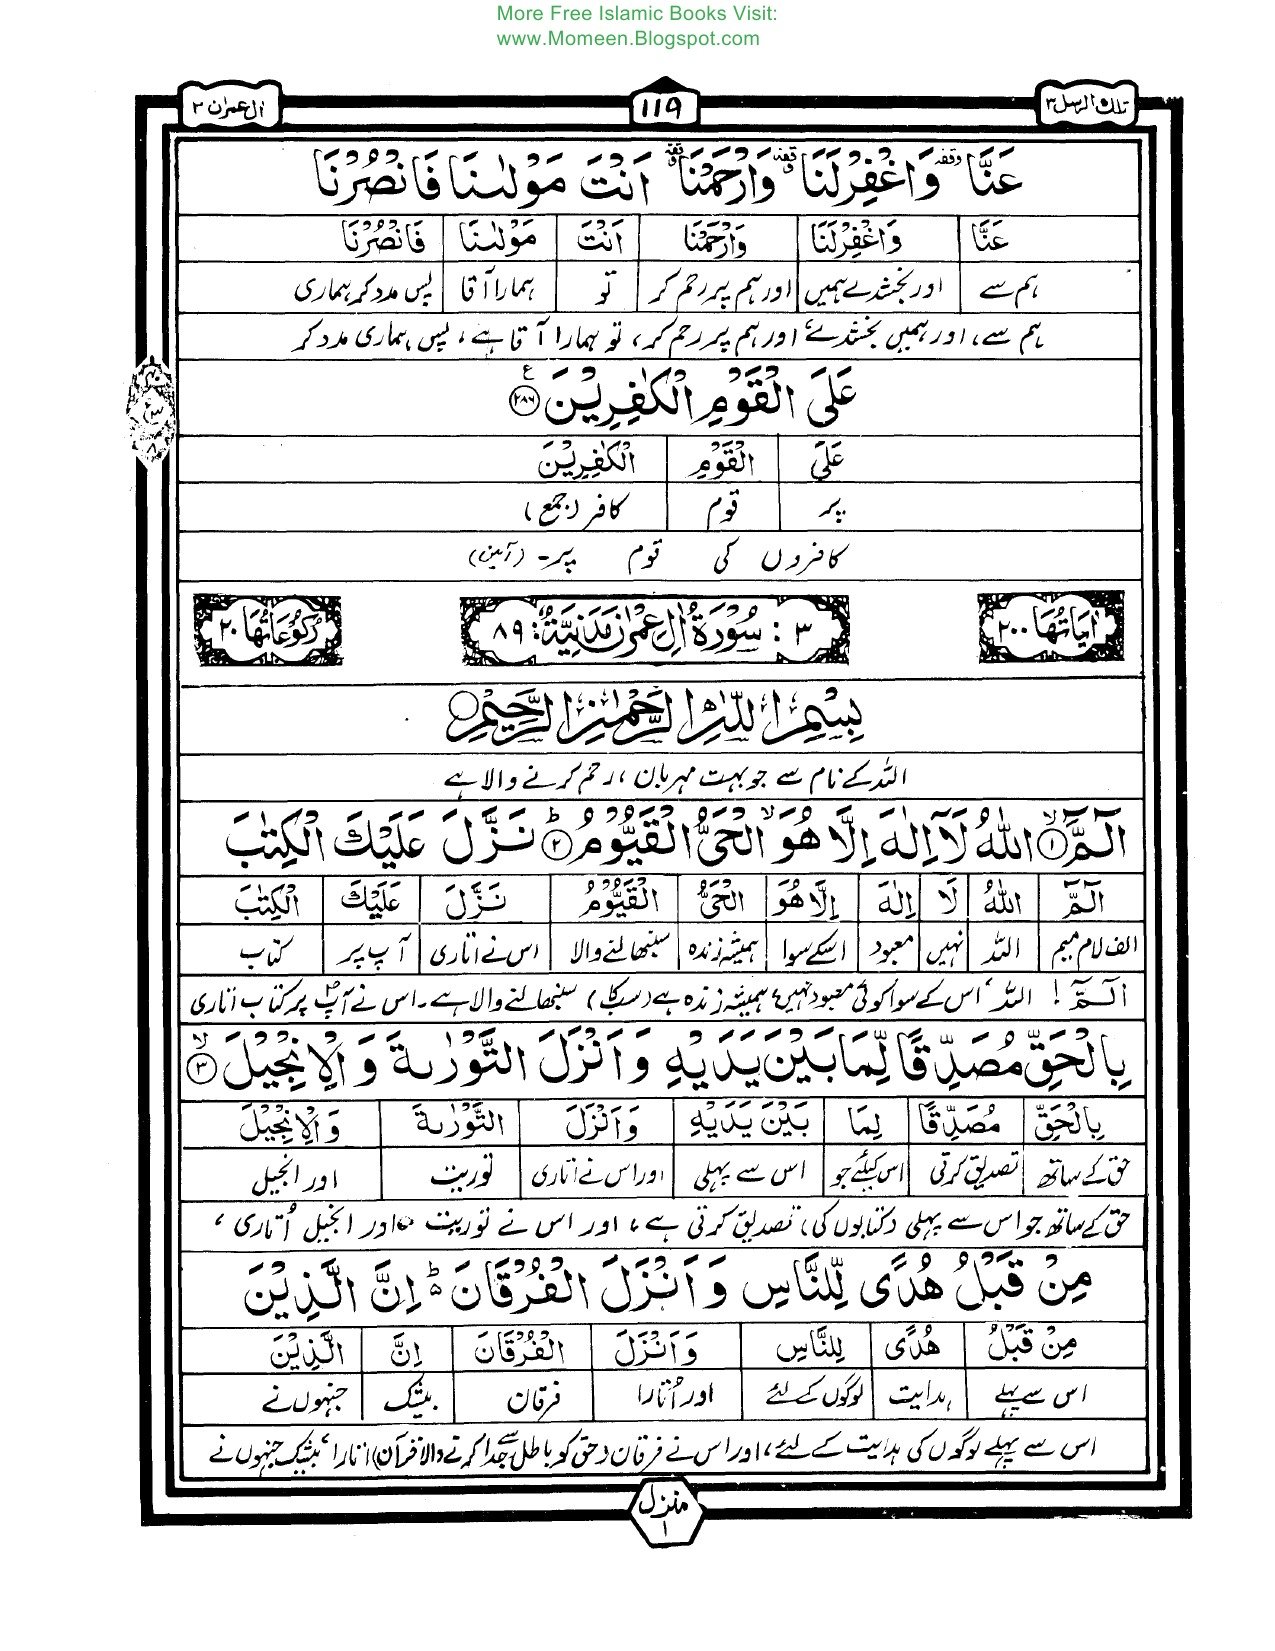 More Free Islamic Books Visit:
www.Momeen.Blogspot.com
تلك الرسل ۳ ۱۱۹ ال عمران ۳
عَنَّا وقفة وَاغْفِرْلَنَا وقفة وَارْحَمْنَا وقفة اَنْتَ مَوْلٰىنَا فَانْصُرْنَا
عَنَّا وَاغْفِرْلَنَا وَارْحَمْنَا اَنْتَ مَوْلٰىنَا فَانْصُرْنَا
ہم سے اور بخشدے ہمیں اور ہم پر رحم کر تو ہمارا آقا پس مدد کر ہماری
ہم سے، اور ہمیں بخشدے اور ہم پر رحم کر، تو ہمارا آقا ہے، پس ہماری مدد کر
عَلَى الْقَوْمِ الْكٰفِرِيْنَ ۲۸۶ ع
عَلَى الْقَوْمِ الْكٰفِرِيْنَ
پر قوم کافر (جمع)
کافروں کی قوم پر۔ (آمین)
اٰيَاتُهَا ۲۰۰ ۳: سُوْرَةُ اٰلِ عِمْرٰنَ مَدَنِيَّةٌ: ۸۹ رُكُوْعَاتُهَا ۲۰
بِسْمِ اللّٰهِ الرَّحْمٰنِ الرَّحِيْمِ
اللہ کے نام سے جو بہت مہربان، رحم کرنے والا ہے
الٓمَّٓ ۱ اللّٰهُ لَآ اِلٰهَ اِلَّا هُوَ الْحَىُّ الْقَيُّوْمُ ۲ نَزَّلَ عَلَيْكَ الْكِتٰبَ
الٓمَّٓ اللّٰهُ لَا اِلٰهَ اِلَّا هُوَ الْحَىُّ الْقَيُّوْمُ نَزَّلَ عَلَيْكَ الْكِتٰبَ
الف لام میم اللہ نہیں معبود اسکے سوا ہمیشہ زندہ سنبھالنے والا اس نے اتاری آپ پر کتاب
الٓمّٓ! اللہ، اس کے سوا کوئی معبود نہیں، ہمیشہ زندہ ہے (سب کا) سنبھالنے والا ہے۔ اس نے آپ پر کتاب اتاری
بِالْحَقِّ مُصَدِّقًا لِّمَا بَيْنَ يَدَيْهِ وَاَنْزَلَ التَّوْرٰىةَ وَالْاِنْجِيْلَ ۳
بِالْحَقِّ مُصَدِّقًا لِمَا بَيْنَ يَدَيْهِ وَاَنْزَلَ التَّوْرٰىةَ وَالْاِنْجِيْلَ
حق کے ساتھ تصدیق کرتی اس کیلئے جو اس سے پہلی اور اس نے اتاری توریت اور انجیل
حق کے ساتھ جو اس سے پہلی (کتابوں کی) تصدیق کرتی ہے، اور اس نے توریت اور انجیل اُتاری،
مِنْ قَبْلُ هُدًى لِّلنَّاسِ وَاَنْزَلَ الْفُرْقَانَ ۵ ط اِنَّ الَّذِيْنَ
مِنْ قَبْلُ هُدًى لِلنَّاسِ وَاَنْزَلَ الْفُرْقَانَ اِنَّ الَّذِيْنَ
اس سے پہلے ہدایت لوگوں کے لئے اور اُتارا فرقان بیشک جنہوں نے
اس سے پہلے لوگوں کی ہدایت کے لئے، اور اس نے فرقان (حق کو باطل سے جدا کرنے والا قرآن) اتارا، بیشک جنہوں نے
منزل ۱